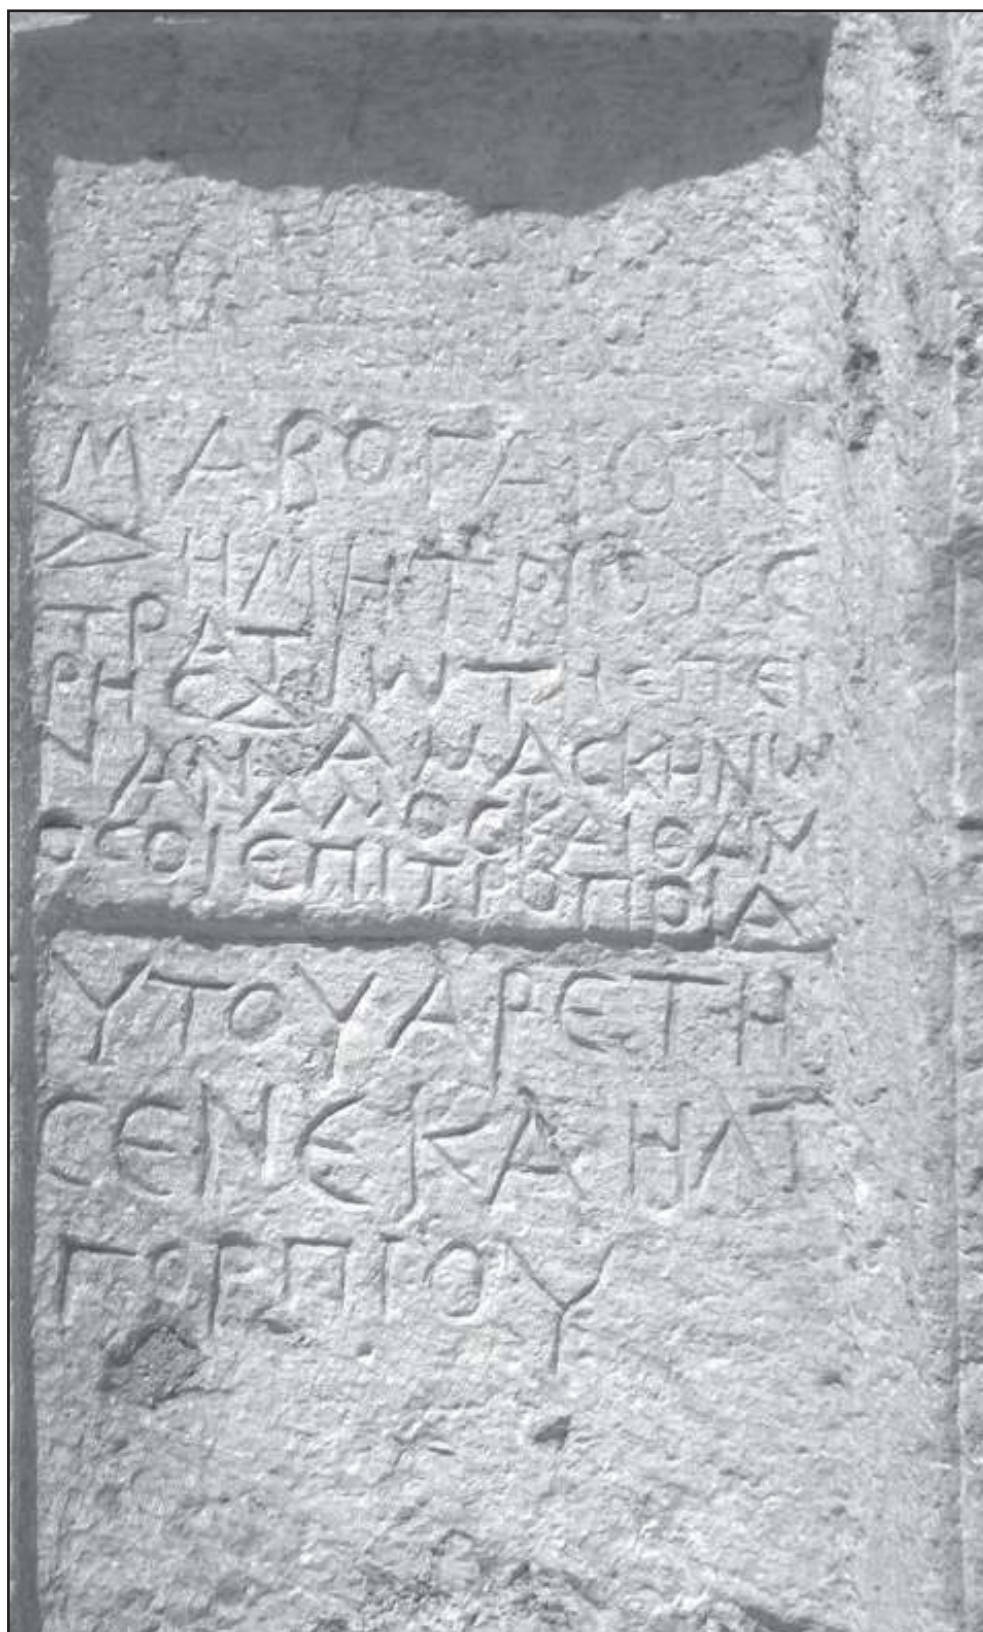 ΜΑΡΟΓΑΙΟΝ
ΔΗΜΗΤΡΙΟΥϹ
ΤΡΑΤΙΩΤΗϹΠΕΙ
ΡΗϹΔΑΜΑϹΚΗΝΩ
ΚΑΙΘΑΝ
ΟϹΟΙΕΠΙΤΡΟΠΟΙΑ
ΥΤΟΥΑΡΕΤΗ
ϹΕΝΕΚΑ ΗΛΤ
ΓΟΡΠΙΟΥ